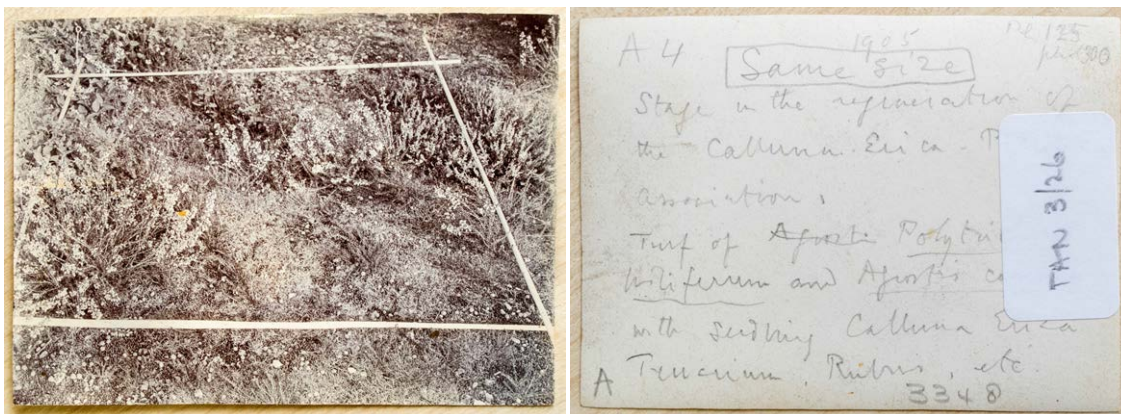 A 4
1905
Pl 125
Same size
Stage in the regeneration of
the Calluna. Erica. P
association.
Turf of Agrostis Polytric
piliferum and Agrostis ca
with seedling Calluna Erica
Teucrium, Rubus, etc.
A
3348
TAN 3/26